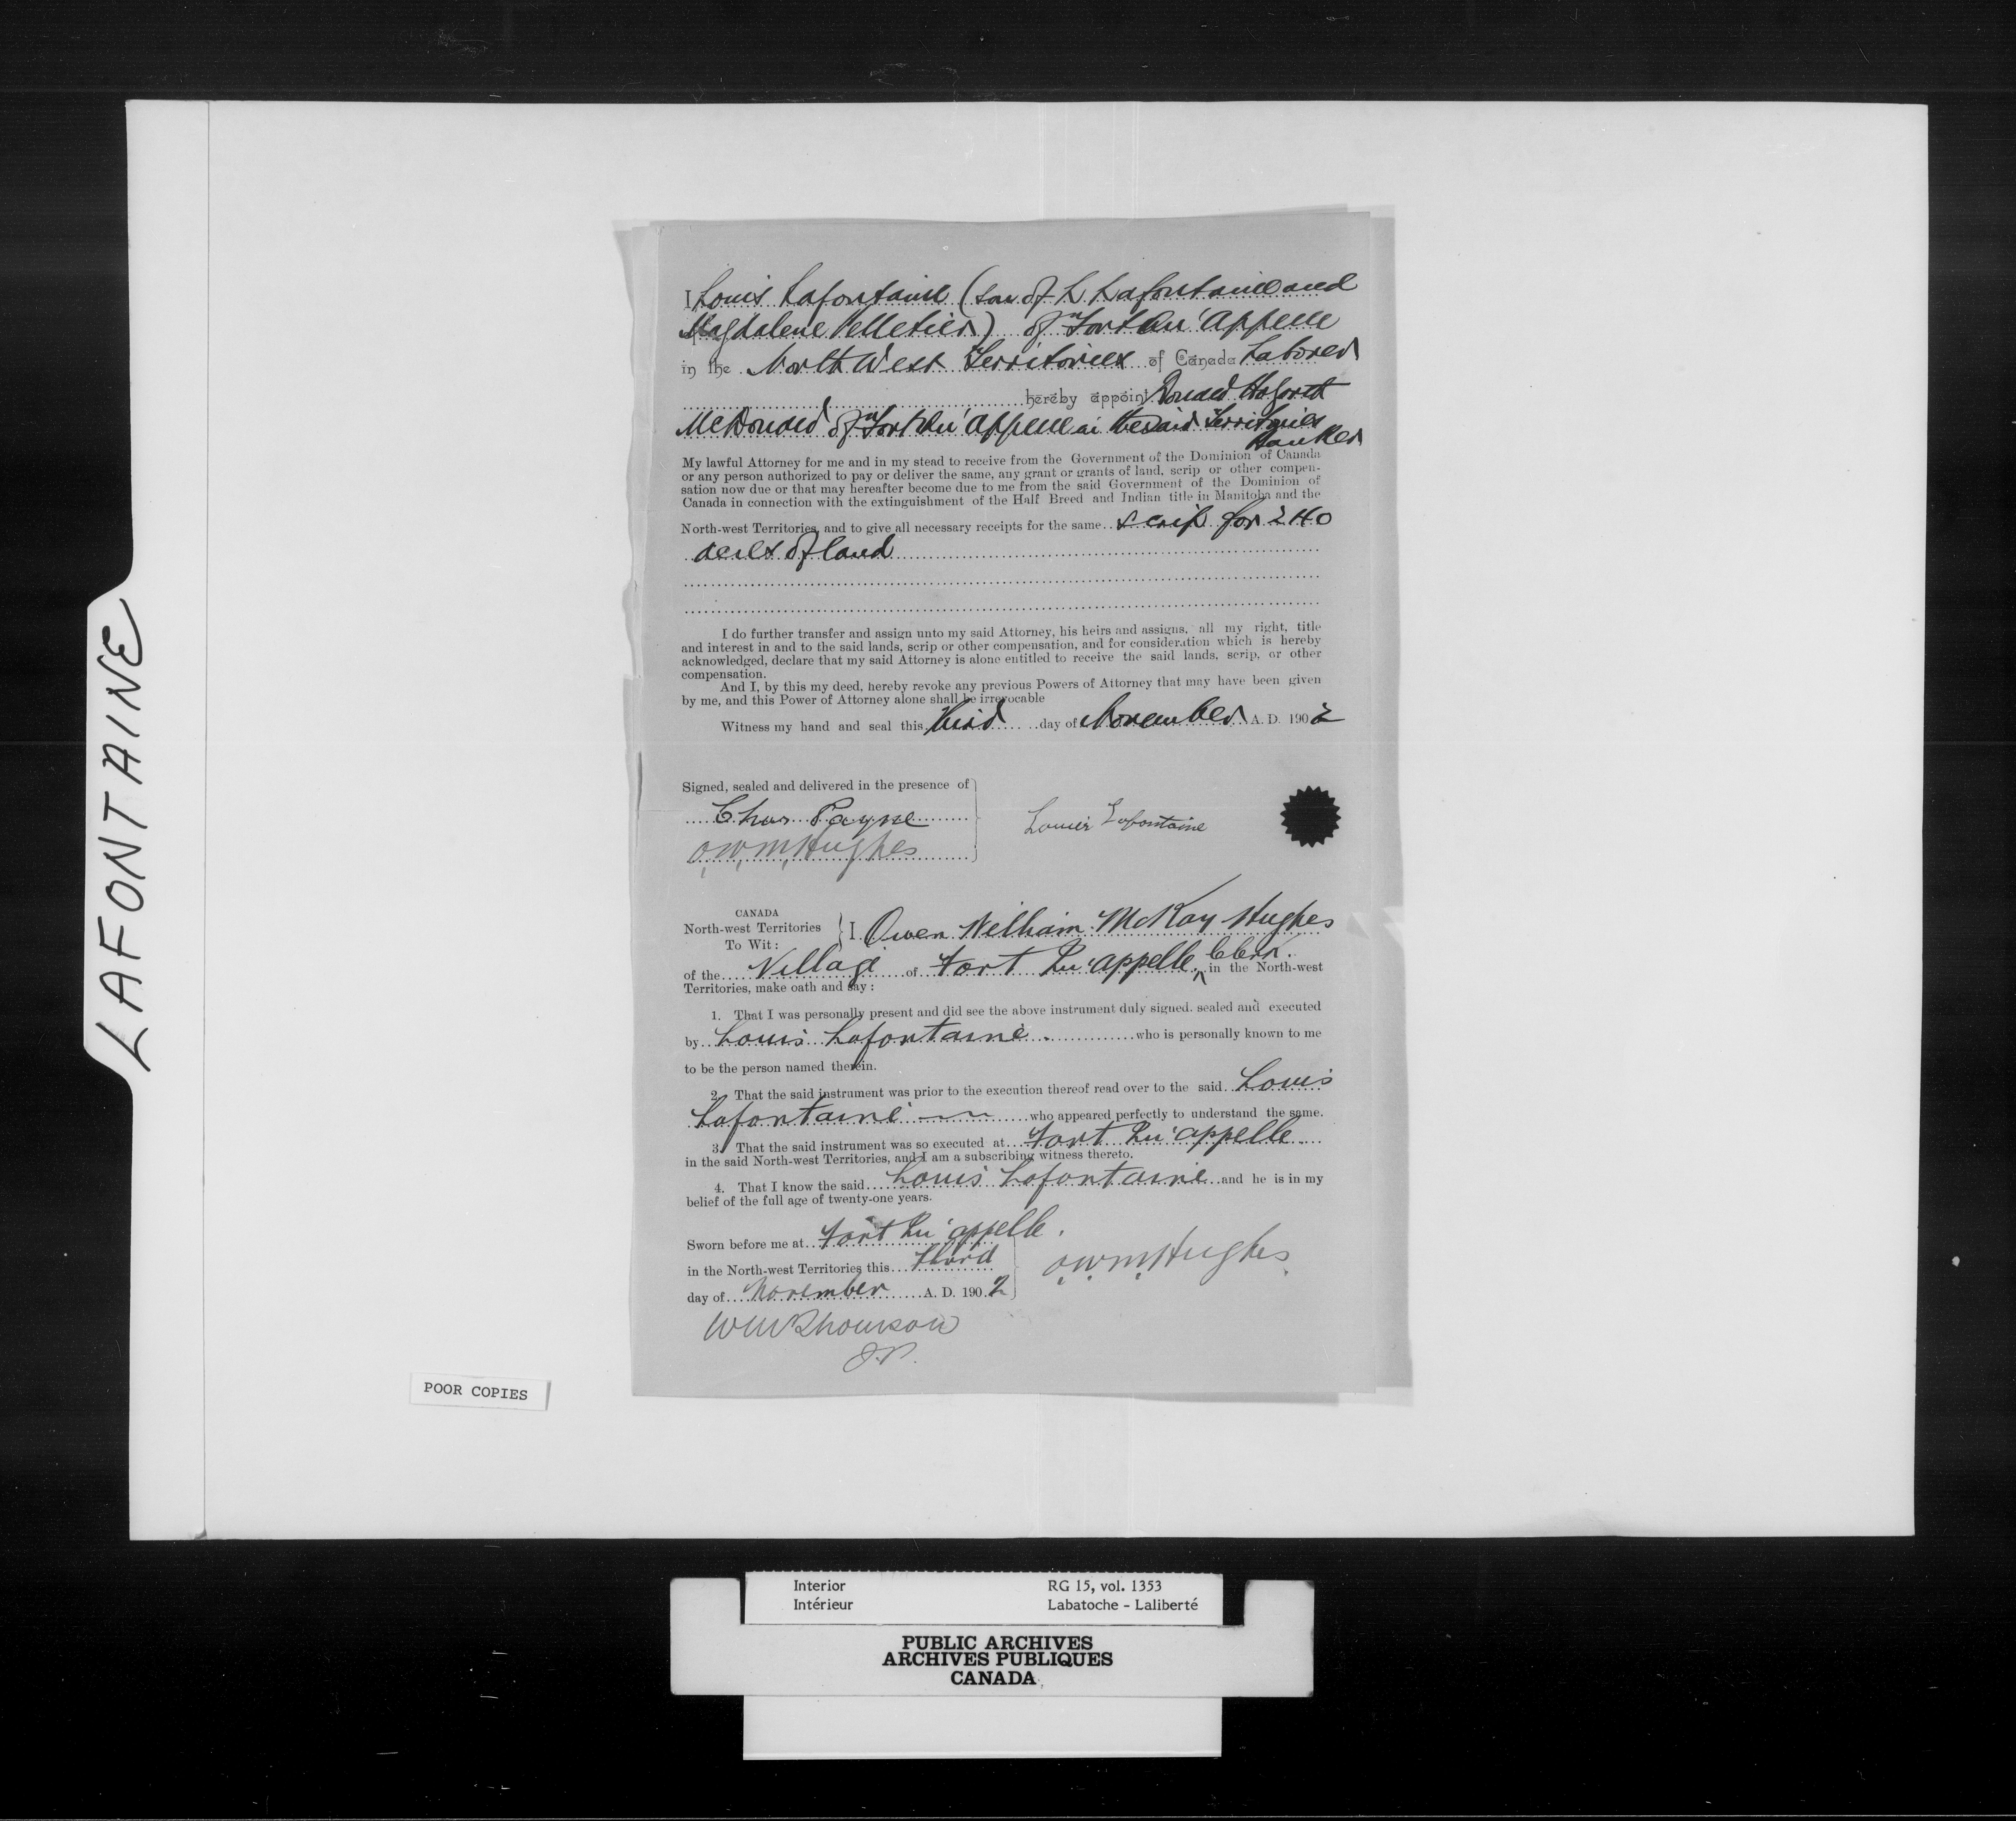 LAFONTAINE
I Louis Lafontaine (son of L Lafontaine and
Magdalene Pelletier) of Fort Qu'Appelle
in the North West Territories of Canada Laborer
hereby appoint Donald Hogarth
McDonald of Fort Qu'Appelle in the said Territories
Banker
My lawful Attorney for me and in my stead to receive from the Government of the Dominion of Canada
or any person authorized to pay or deliver the same, any grant or grants of land, scrip or other compen-
sation now due or that may hereafter become due to me from the said Government of the Dominion of
Canada in connection with the extinguishment of the Half Breed and Indian title in Manitoba and the
North-west Territories, and to give all necessary receipts for the same scrip for 240
acres of land
I do further transfer and assign unto my said Attorney, his heirs and assigns, all my right, title
and interest in and to the said lands, scrip or other compensation, and for consideration which is hereby
acknowledged, declare that my said Attorney is alone entitled to receive the said lands, scrip, or other
compensation.
And I, by this my deed, hereby revoke any previous Powers of Attorney that may have been given
by me, and this Power of Attorney alone shall be irrevocable
Witness my hand and seal this third day of November A. D. 1902
Signed, sealed and delivered in the presence of
Chas Payne
Louis Lafontaine
O.W.M. Hughes
CANADA
North-west Territories
To Wit:
I Owen William McKay Hughes
of the Village of Fort Qu'appelle, Clerk. in the North-west
Territories, make oath and say:
1. That I was personally present and did see the above instrument duly signed. sealed and executed
by Louis Lafontaine who is personally known to me
to be the person named therein.
2. That the said instrument was prior to the execution thereof read over to the said Louis
Lafontaine who appeared perfectly to understand the same.
3. That the said instrument was so executed at Fort Qu'appelle
in the said North-west Territories, and I am a subscribing witness thereto.
4. That I know the said Louis Lafontaine and he is in my
belief of the full age of twenty-one years.
Sworn before me at Fort Qu'appelle.
in the North-west Territories this third
day of November A. D. 1902
O.W.M. Hughes
Wm Thomson
J.P.
POOR COPIES
Interior
Intérieur
RG 15, vol. 1353
Labatoche - Laliberté
PUBLIC ARCHIVES
ARCHIVES PUBLIQUES
CANADA